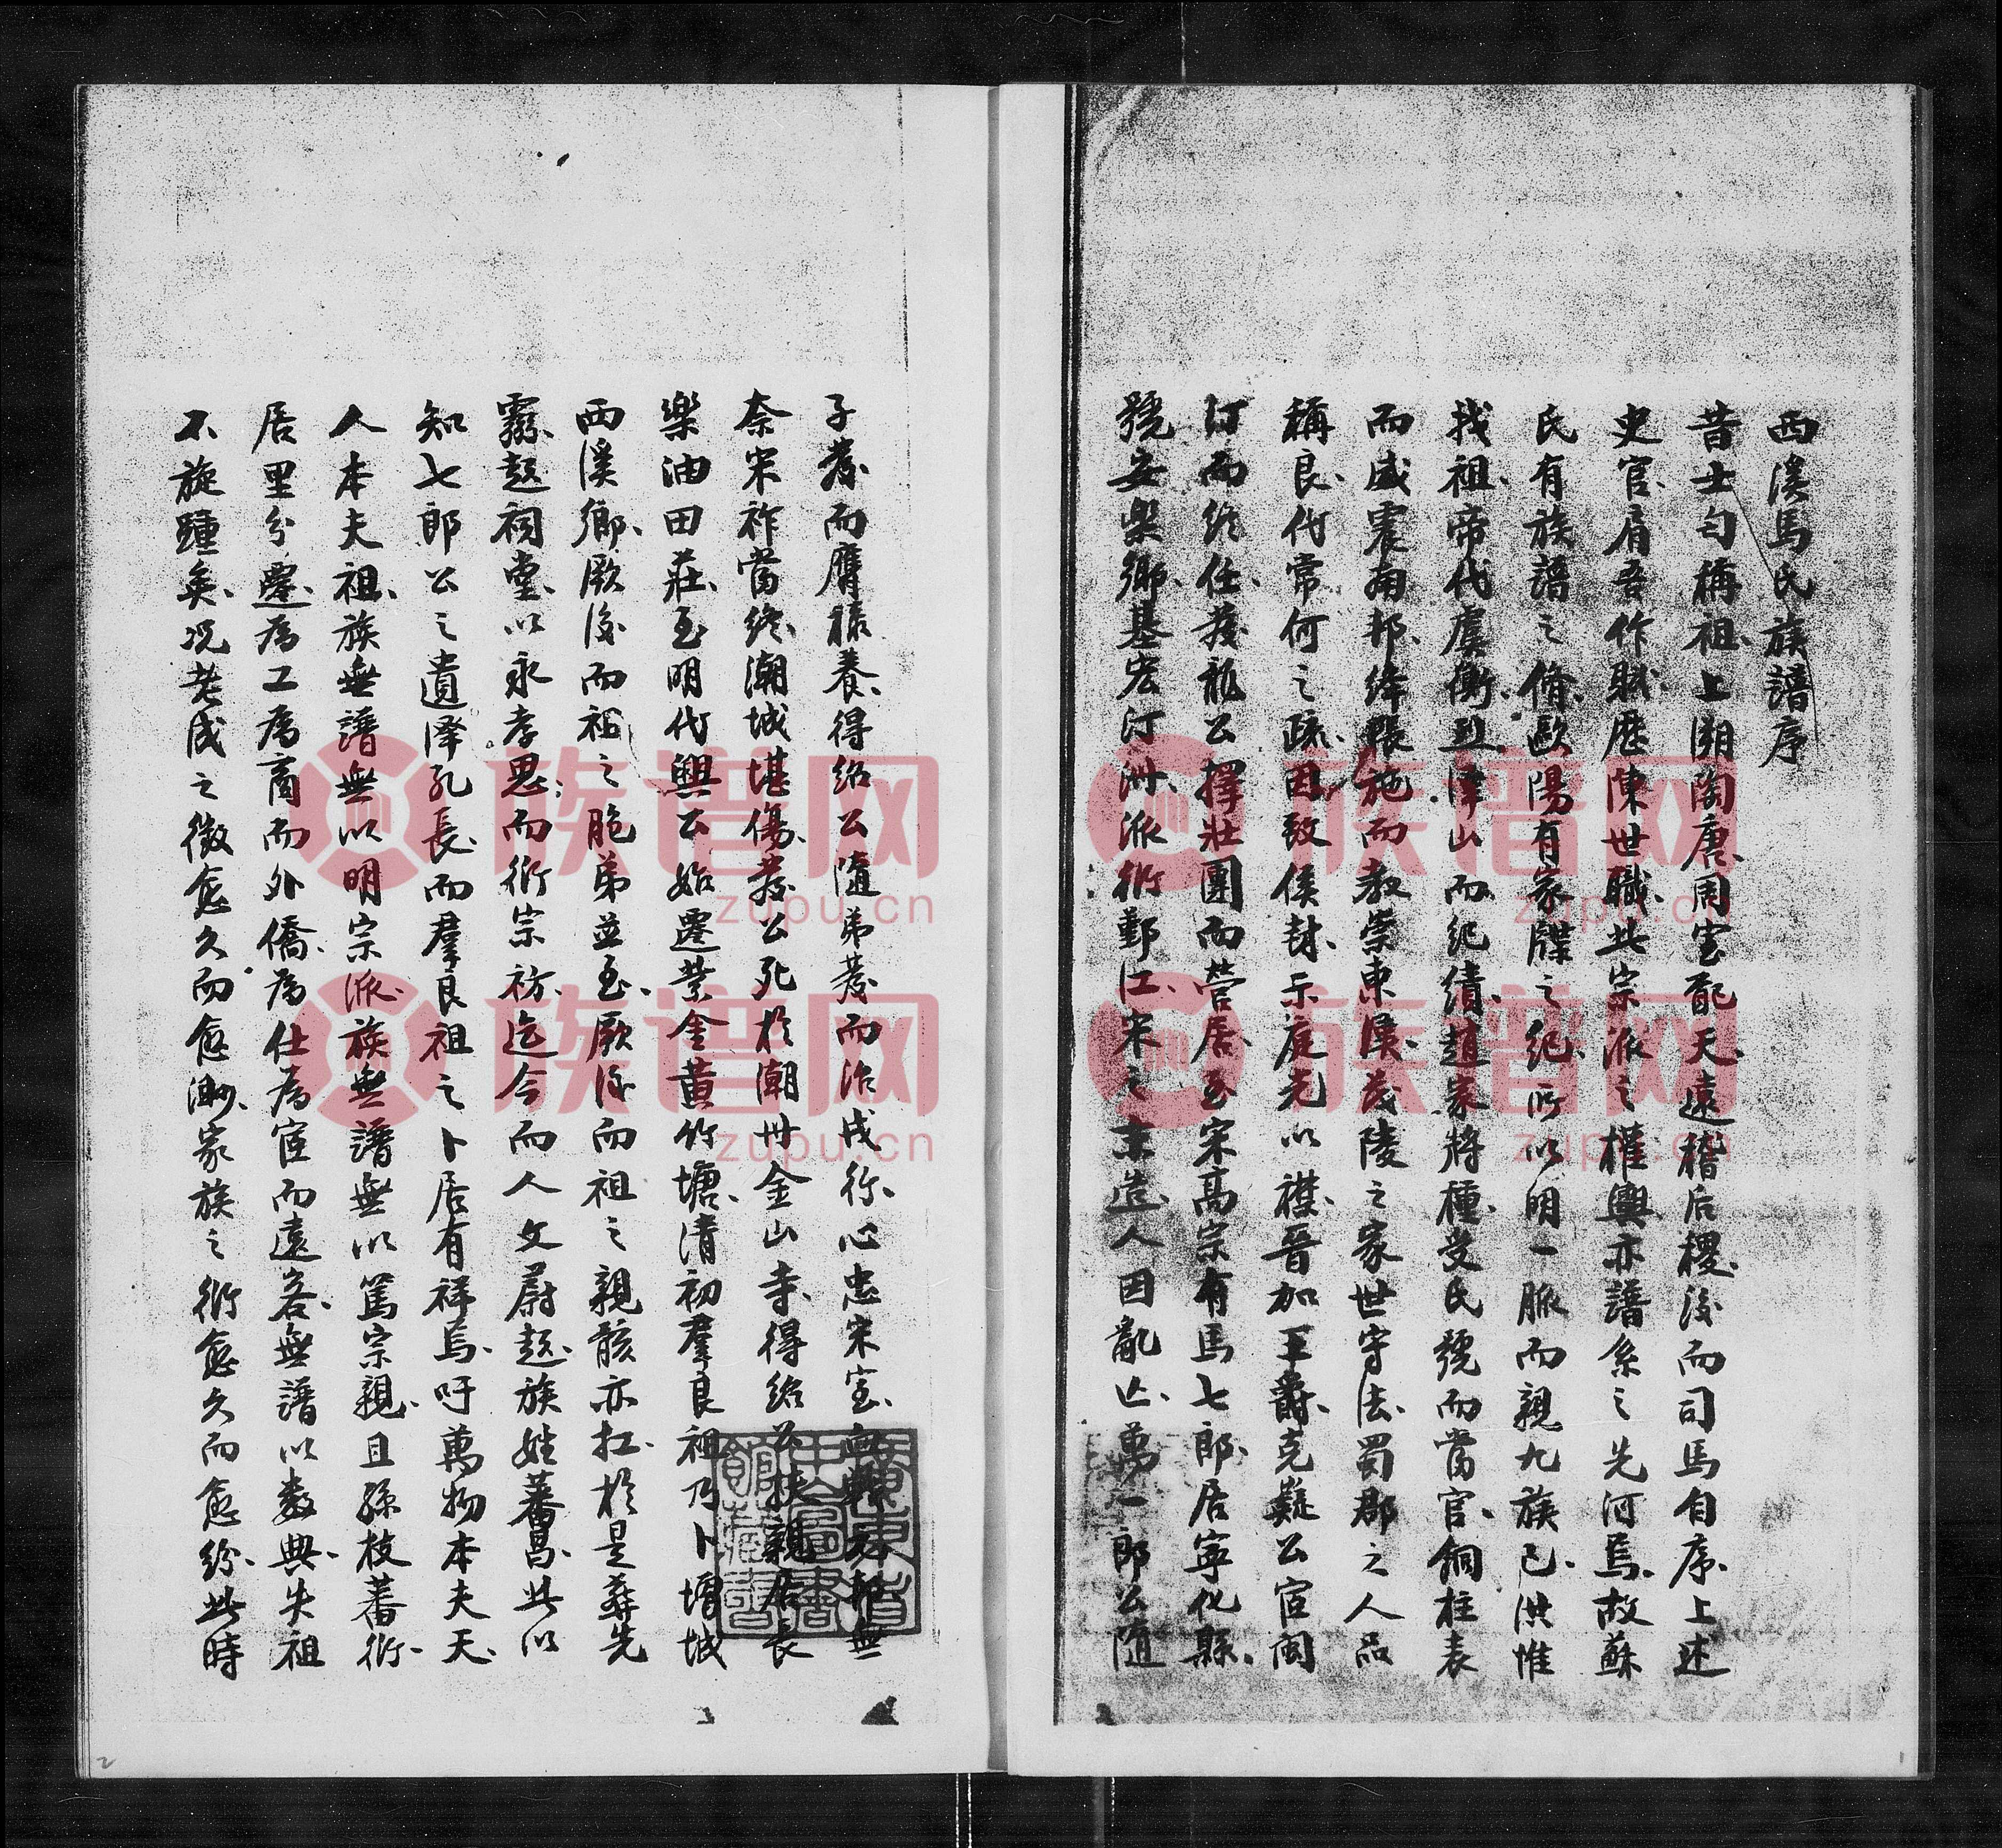 西溪馬氏族譜序
昔士匄稱祖上溯陶唐周室配天遠稽后稷後而司馬自序上述
史官肩吾作賦歷陳世職此宗派之權輿亦譜系之先河焉故蘇
氏有族譜之脩歐陽有家牒之紀所以明一脈而親九族已洪惟
我祖帝代虞衡烈山而紀績趙家將種受氏號而當官銅柱表
而威震南邦絳帳施而教崇東漢茂陵之家世守法蜀郡之人品
稱良代常何之疏因致侯封示庭光以襟晉加王爵克疑公宦閩
汀而終任發龍公擇壯團而營居至宋高宗有馬七郎居寧化縣
號安樂鄉基宏汀洲派衍鄞江宋之末造人因亂亡萬一郎公隨
子發而膺祿養得紹公隨弟發而治戎行心忠宋室無
奈宋祚當終潮城堪傷發公死於潮卅金山寺得紹公扶親居長
樂油田莊至明代興公始遷紫金黃竹塘清初羣良祖乃卜增城
西溪鄉厥後而祖之胞弟並至厥後而祖之親骸亦扛於是葬先
骸起祠堂以永孝思而衍宗祊迄今而人文蔚起族姓蕃昌此以
知七郎公之遺澤孔長而羣良祖之卜居有祥焉吁萬物本夫天
人本夫祖族無譜無以明宗派族無譜無以篤宗親且孫枝蕃衍
居里分遷爲工爲商而外僑爲仕爲宦而遠客無譜以數典失祖
不旋踵矣况老成之徵愈久而愈渺家族之衍愈久而愈紛此時
廣東省
中山圖書
館藏書
族谱网
zupu.cn
族谱网
zupu.cn
族谱网
zupu.cn
族谱网
zupu.cn
1
2